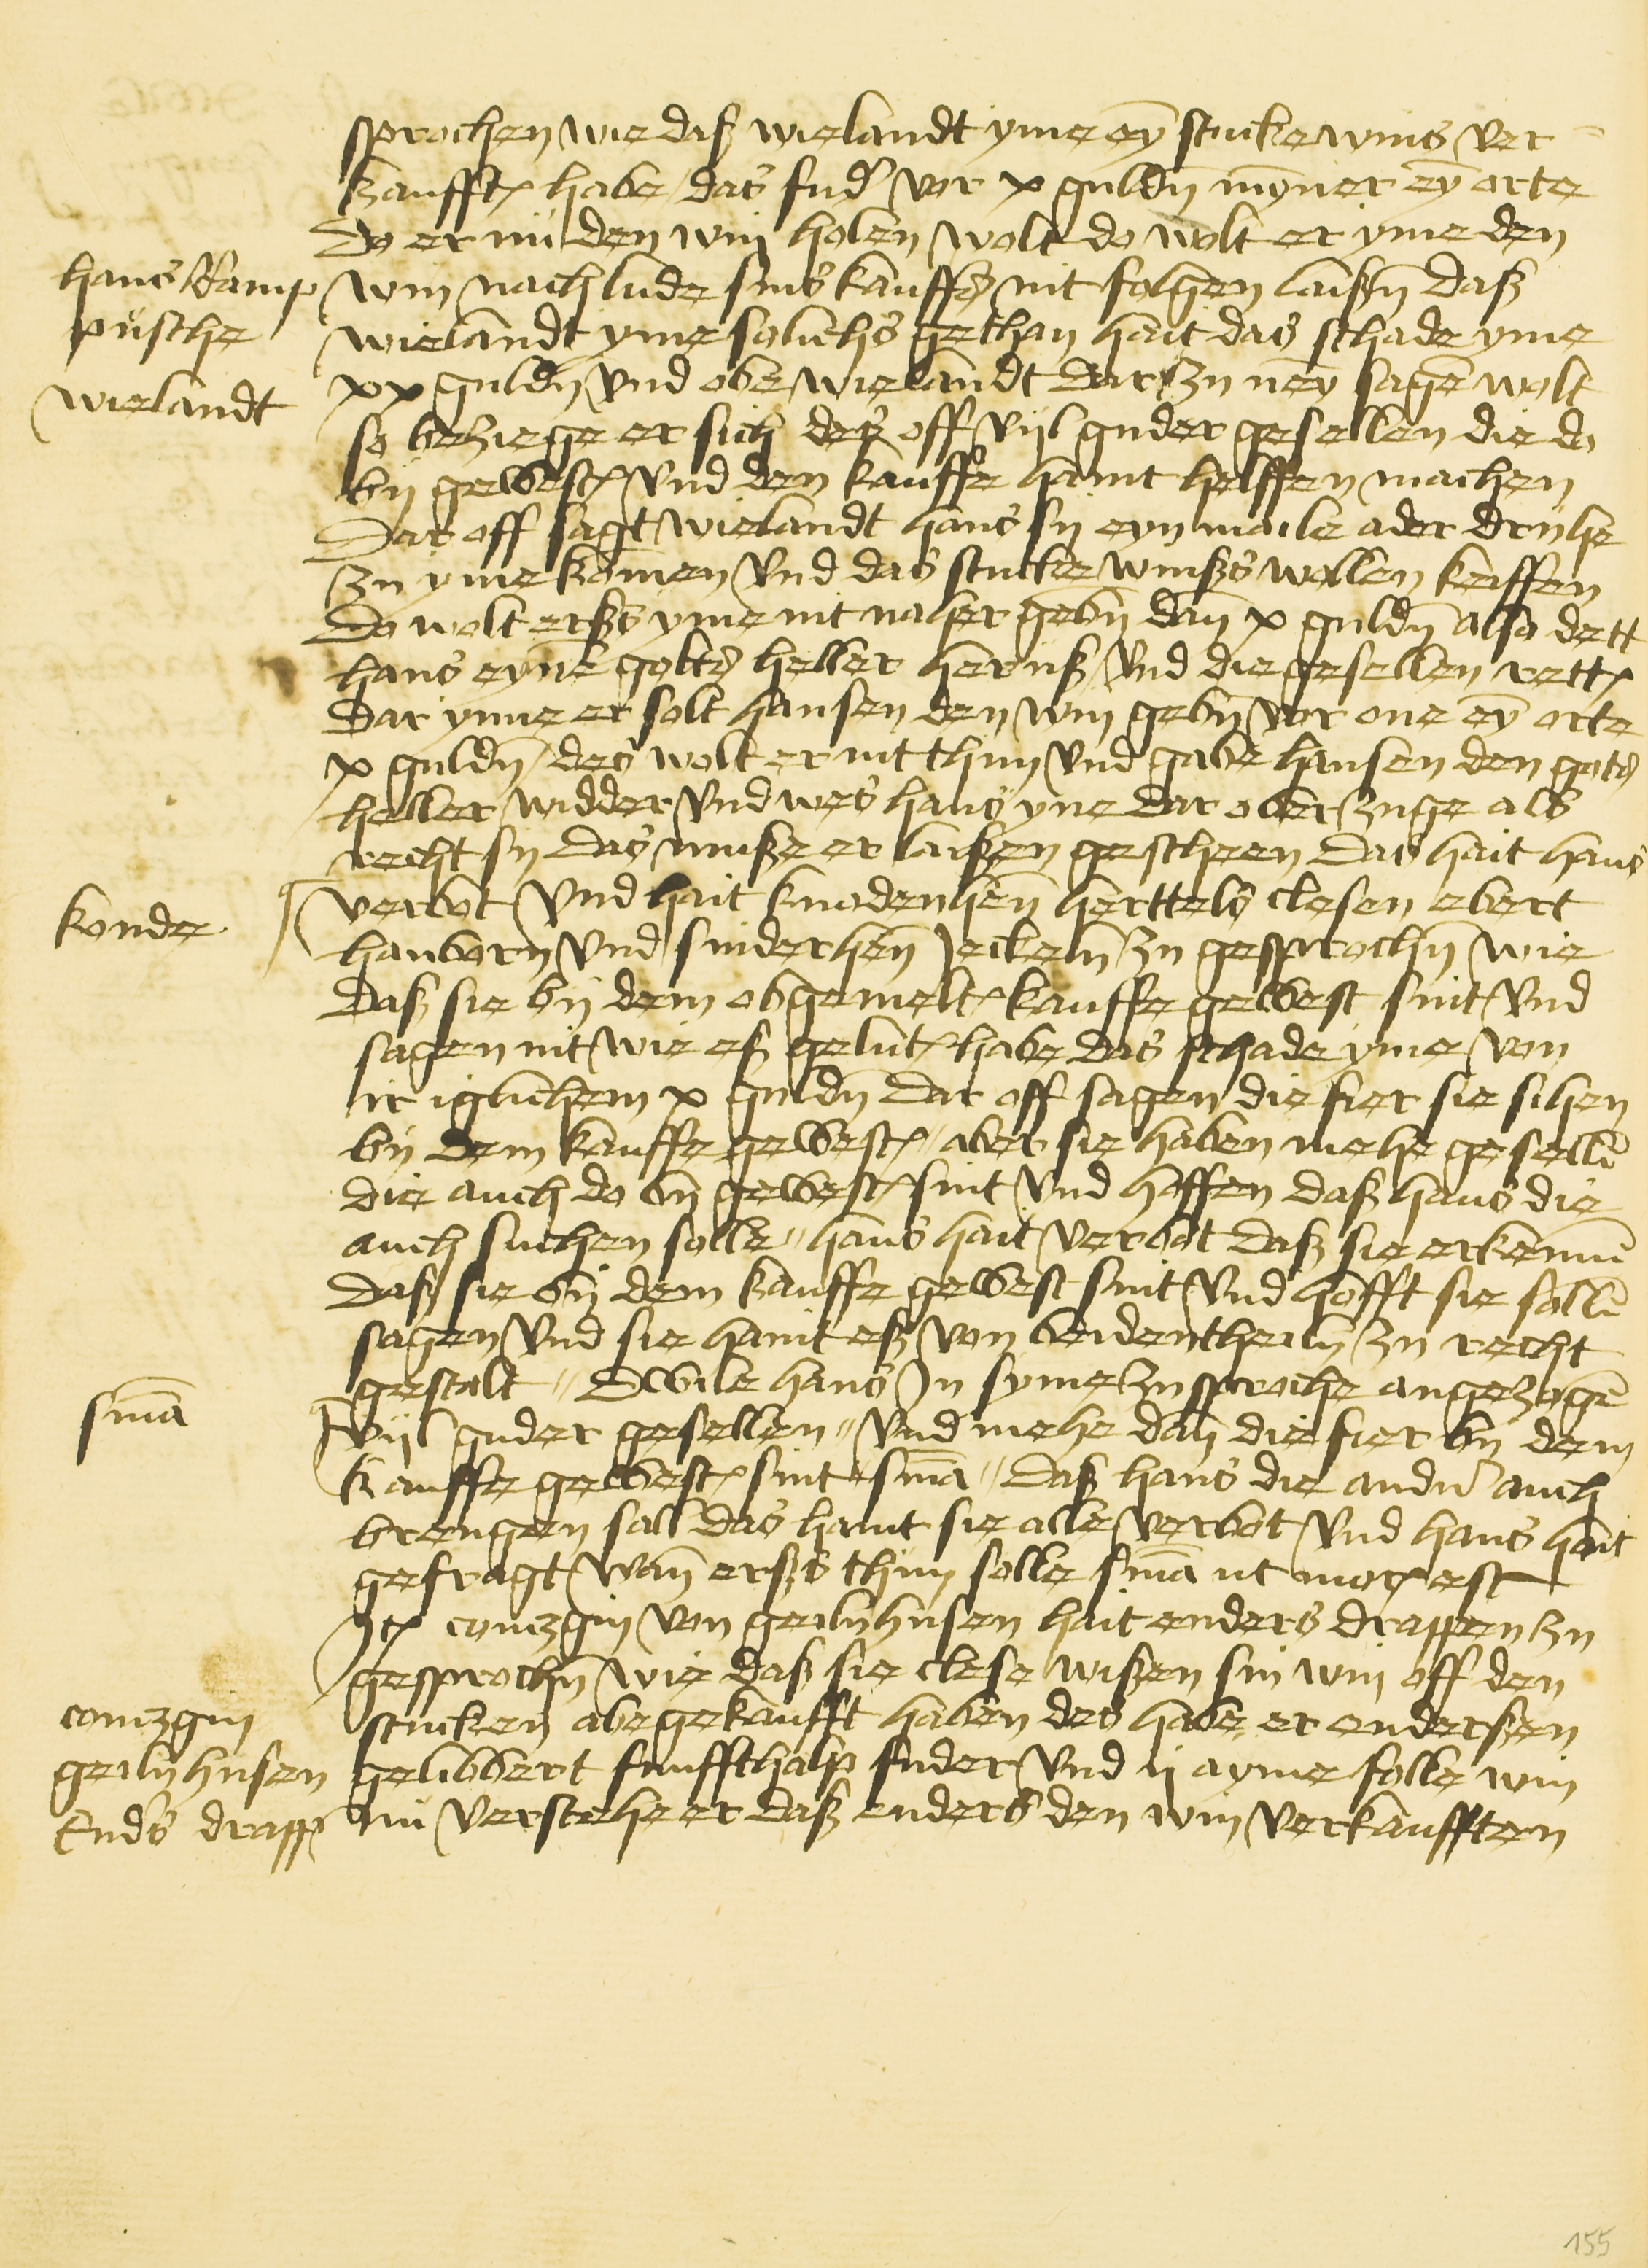 sprochen wie daß wielandt yme eyn stucke wins ver¬
kaufft habe das fuder vor x gulden mynner eyn orte
Do er nu den win holen wolt do wolt er yme den
hans kamp
pusche
wielandt
win nach lude sins kauffs nit folgen laißen daß
wielandt yme solichs gethan hait das schade yme
xx gulden und obe wielandt dar zu neyn sagen wolt
so bezie ge er sich des off vijl guder gesellen die do
by gewest und den kauffe haint helffen machen
Dar off sagt wielandt hans sy eyn maile ader druhe
zu yme komen und das stucke winßs wollen keiffen
Do wolt erßs yme nit naher geben dan x gulden also dett
hans eynen gotts heller heruß und die gesellen rett
dar ynne er solt hansen den win geben vor one eyn orte
x gulden des wolt er nit thun und gabe hansen den gots
heller widder und wes hans yne dar ober zuge als
recht sy das muße er laißen gescheen das hait hans
konde
verbot und hait knodenhen herttels clesen ebert
hanborn und sniderhen jeckeln zu gesprochen wie
daß sie by dem obgemelt kauffe gewest sint und
sagen nit wie eß gelut habe das schade yme von
ir iglichem x gulden Dar off sagen die fier sie sihen
by dem kauffe gewest aber sie haben mehe gesellen
die auch do by gewest sint und hoffen daß hans die
auch suchen solle hans hait verbot daß sie erkennen
daß sie by dem kauffe gewest sint und hofft sie sollen
sagen und sie haint eß von beiden theiln zu recht
gestalt Dwile hans in syme zusproche angezogen
snia
vijl guder gesellen und mehe dan die fier by dem
kauffe gewest sint snia daß hans die andern auch
brengen sall das haint sie alle verbot und hans hait
gefragt wan erßs thun solle snia ut moris est
Item contzgin von geilnhusen hait enders drappen zu
gesprochen wie daß sie clese wißen sin win off den
contzgin
geilnhusen
Enders drapp
stucken abegekaufft haben des habe er enderßen
gelibbert funffthalp fuder und ij ayme folle win
nu verstehe er daß enders den win verkaufften
155